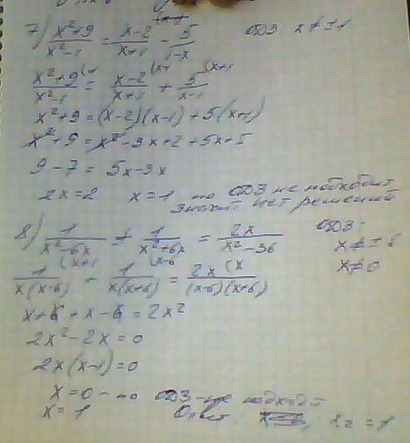 7) (x²+9)/(x²-1) = (x-2)/(x+1) - 5/(1-x) ОДЗ x≠±1
(x²+9)/(x²-1) = (x-2)/(x+1) + 5/(x-1)
x²+9 = (x-2)(x-1) + 5(x+1)
x²+9 = x²-3x+2+5x+5
9-7 = 5x-3x
2x=2 x=1 по ОДЗ не подходит
значит нет решений
8) 1/(x²-6x) + 1/(x²+6x) = 2x/(x²-36) ОДЗ:
x≠±6
x≠0
1/(x(x-6)) + 1/(x(x+6)) = 2x/((x-6)(x+6))
x+6+x-6 = 2x²
2x²-2x=0
2x(x-1)=0
x=0 - по ОДЗ-не подход
x=1 Ответ: x₂=1